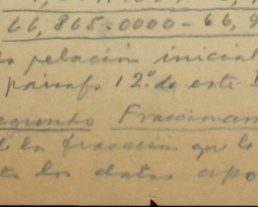 66,865.0000-66,9
relación inicial
párrafo 12º de este
Segundo Fraccionam
de la fracción que le
los datos apo